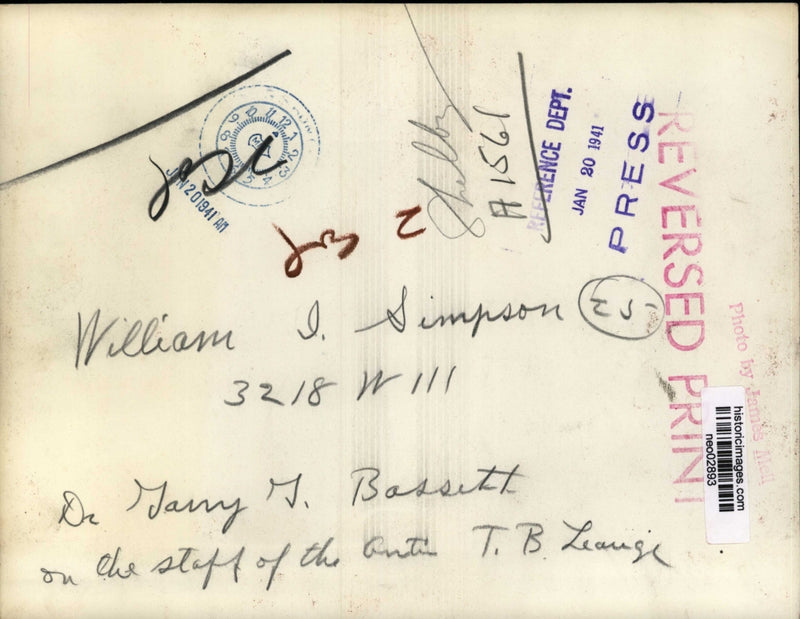 JAN 20 1941 AM
Shelby
A 1561
REFERENCE DEPT.
JAN 20 1941
PRESS
REVERSED PRINT
Photo by James
historicimages.com
neo02893
William I. Simpson
25
3218 W 111
Dr Garry G. Bassett
on the staff of the Anti T.B. Leauge